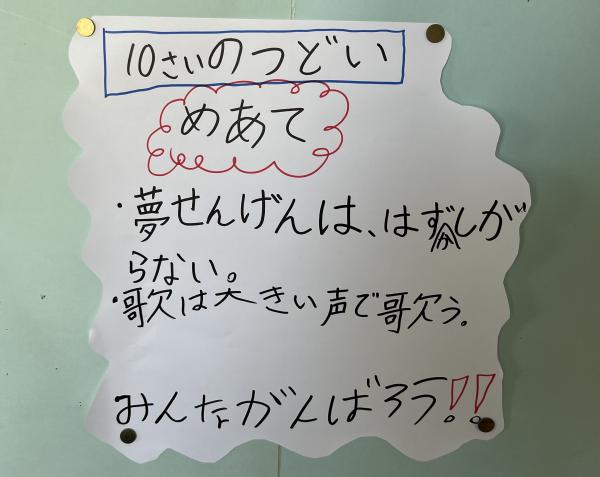 10さいのつどい
めあて
・夢せんげんは、はずかしが
らない。
・歌は大きい声で歌う。
みんながんばろう!!